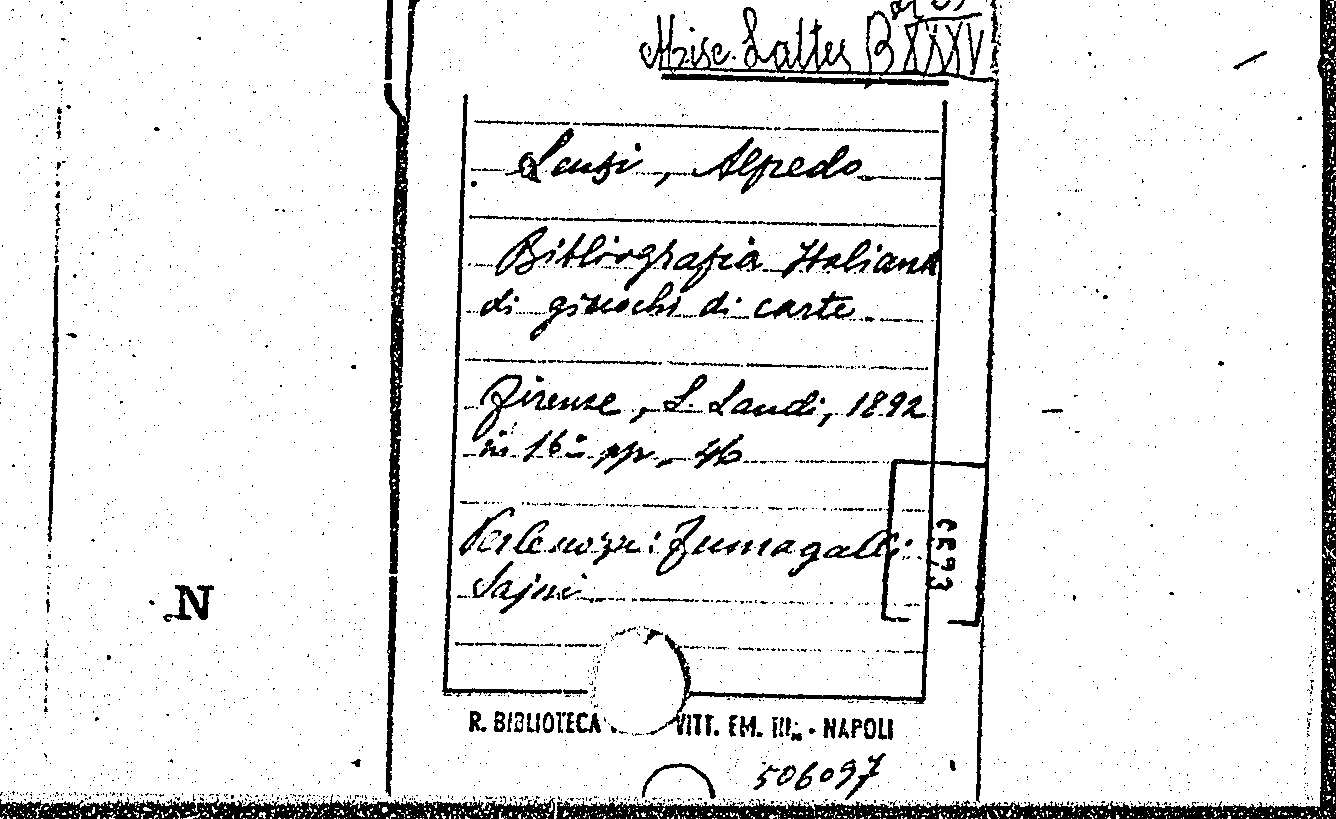 Misc. Salter B XXXV
Lensi, Alfredo
Bibliografia Italiana
di giuochi di carte.
Firenze, S. Landi, 1892
in 16° pp. 46
Fumagalli
Sajni
R. BIBLIOTECA VITT. EM. III. - NAPOLI
506097
N